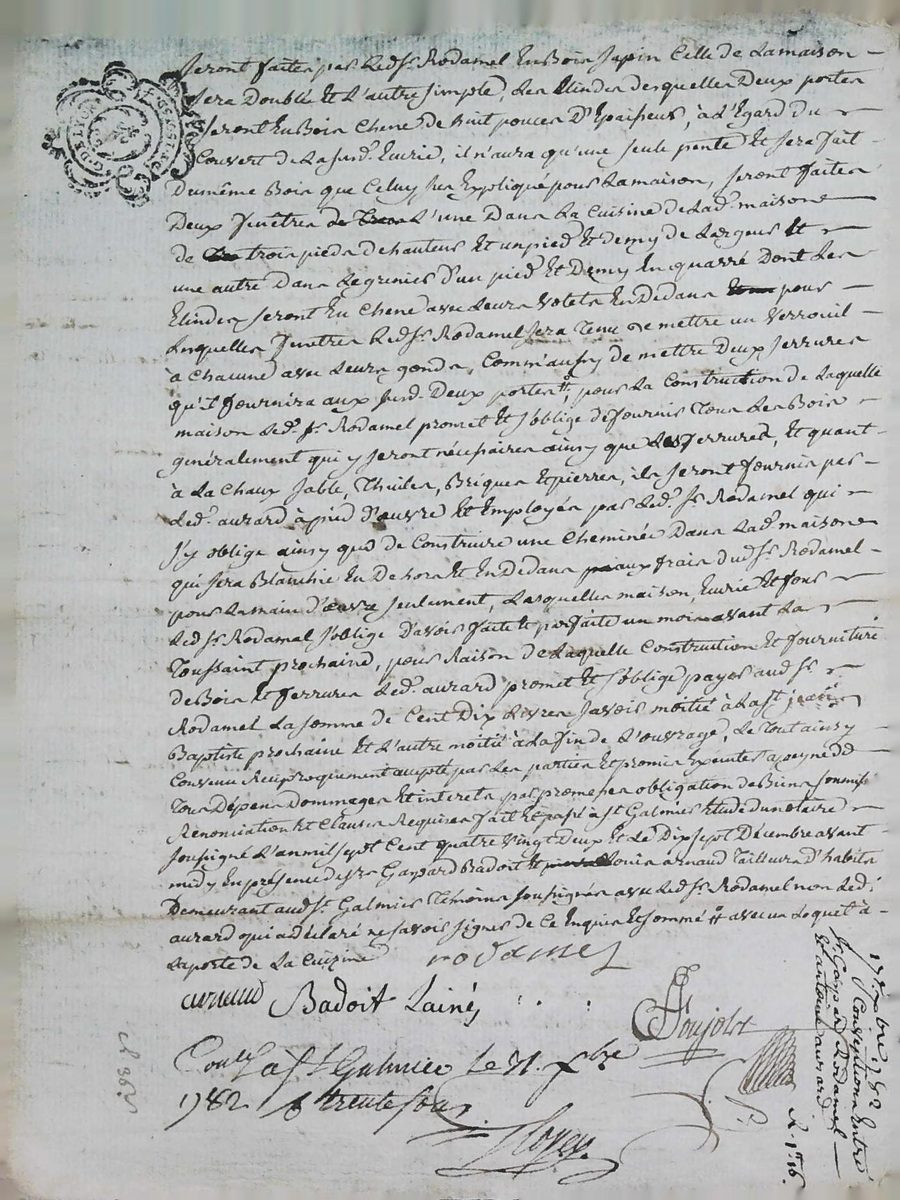 Seront faites par led. Sr. Rodamel En Bois Sapin Celle de Lamaison
Sera Doublé Et L'autre Simple, Les Elindes desquelles Deux portes
Seront En Bois Chene de huit pouces D'Epaisseur, à L'Egard du
Couvert de La Susd. Eurie, il n'aura qu'une seule pente Et Sera fait
Du même Bois que Celuy Sus Expliqué pour Lamaison, Seront faites
Deux fenêtres L'une Dans La Cuisine de Lad. maison
de trois pieds de hauteur Et un pied Et demy de Largeur Et
une autre Dans Le grenier D'un pied Et Demy En quarré Dont Les
Elindes Seront En Chene avec Leurs Volets En Dedans pour
Lesquelles fenêtres Led. Sr. Rodamel Sera Tenu de mettre un Verrouil
à Chacune avec Leurs gonds, Comm'aussy de mettre Deux Serrures
qu'il fournira aux Susd. Deux portes #, pour La Construction de Laquelle
maison Led. Sr. Rodamel promet Et S'oblige de fournir Tous Les Bois
généralement qui y Seront nécessaires ainsy que Les ferrures, Et quant
à La Chaux Sable, Thuiles, Briques Et pierres, ils Seront fournis par
Led. aurard à pied d'œuvre Et Employés par Led. Sr. Rodamel qui
S'y oblige ainsy que de Construire une Cheminée Dans Lad. maison
qui Sera Blanchie En Dehors Et En Dedans aux frais dud. Sr. Rodamel
pour La main d'œuvre Seulement, Lesquelles maison, Eurie Et four
Led. Sr. Rodamel S'oblige D'avoir faite Et parfaite un mois avant La
Toussaint prochaine, pour Raison de Laquelle Construction Et fourniture
de Bois Et ferrures Led. aurard promet Et S'oblige payer aud. Sr.
Rodamel La Somme de Cent Dix Livres Savoir moitié à La St. jean
Baptiste prochaine Et L'autre moitié à La fin de L'ouvrage, Le Tout ainsy
Convenu Reciproquement accepté par Les parties Et promis Executer a peyne de
Tous Dépens Dommages Et interets par promesses obligation de Biens Soumis.
Renonciation Et Clauses Requises fait Et passé à St. Galmier Etude du notaire
Soussigné L'an mil Sept Cent quatre Vingt Deux Et Le Dix Sept Décembre avant
midy En présence de Srs. Gaspard Badoit Et Louis arnaud Tailleurs D'habits
Demeurant aud. St. Galmier Témoins Soussignés avec Led. Sr. Rodamel non Led.
aurard qui a déclaré ne Savoir Signer de Ce Enquis Et Sommé # avec un Loquet à
La porte de La Cuizine
rodamel
arnaud Badoit Lainé
Poujolat
Con.lé a St. Galmier Le 31. Xbre
1782 R trente Sous
17e. Xbre 1782
Conventions Entre
Sr. Gaspard Rodamel
Et antoine aurard